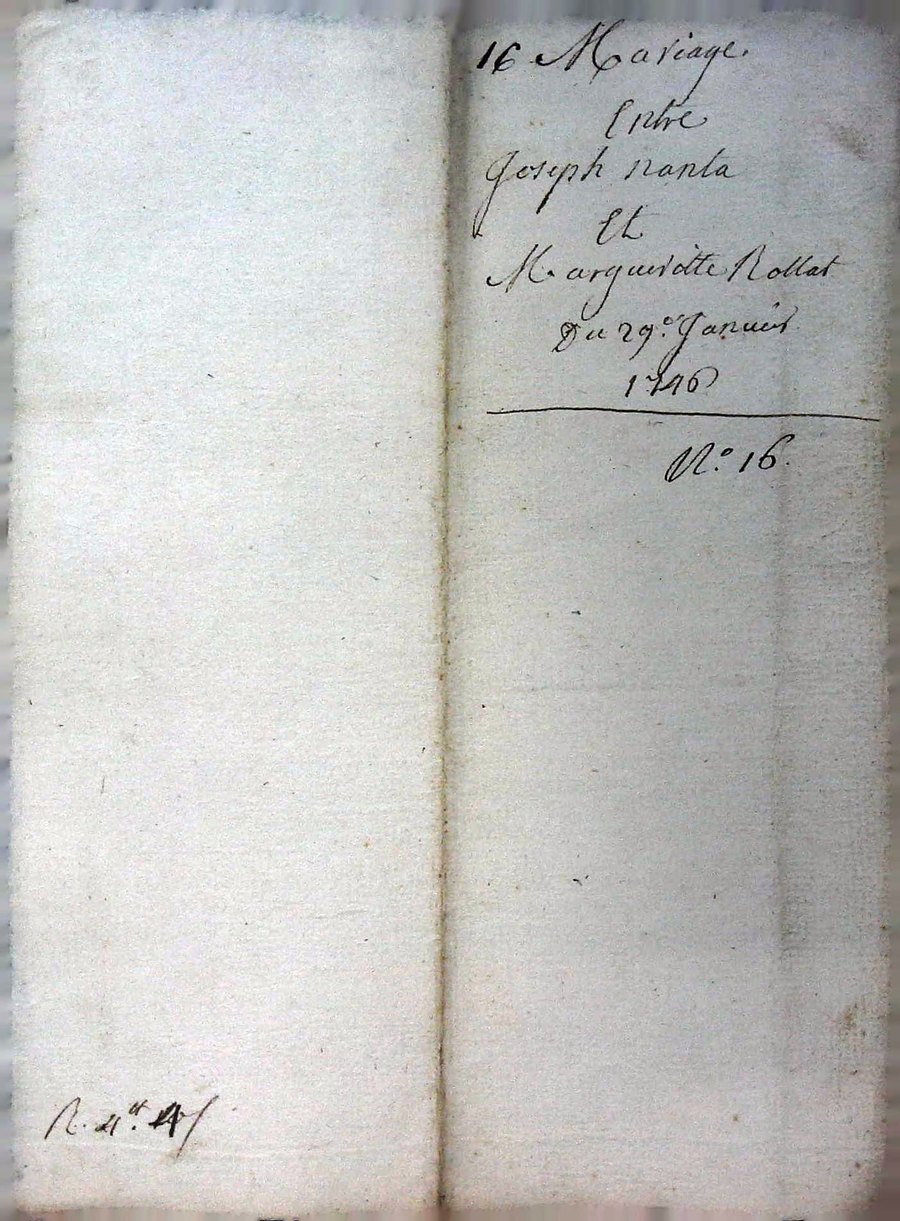 16 Mariage.
Entre
Joseph nanta
Et
Margueritte Rollat
Du 29.e Janvier
1746
N.o 16.
R. 4.tt 4 s